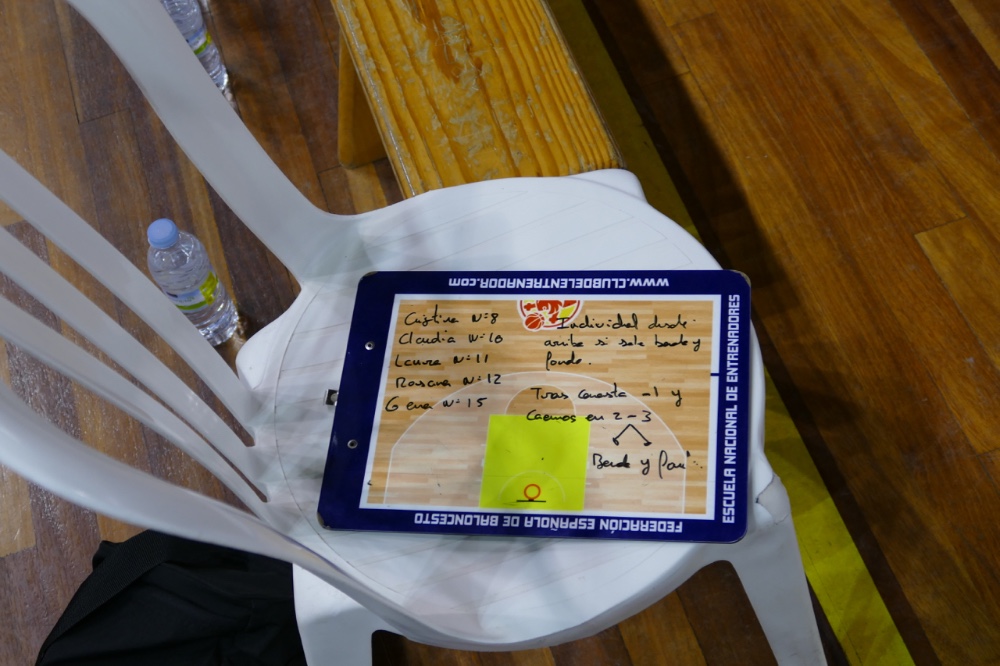 WWW.CLUBDELENTRENADOR.COM
Cristina Nº8
Claudia Nº10
Laura Nº11
Rosana Nº12
Gema Nº15
Individual desde
arriba si sale bonde y
fondo.
Tras canasta -1 y
Caemos en 2-3
y
ESCUELA NACIONAL DE ENTRENADORES
FEDERACIÓN ESPAÑOLA DE BALONCESTO